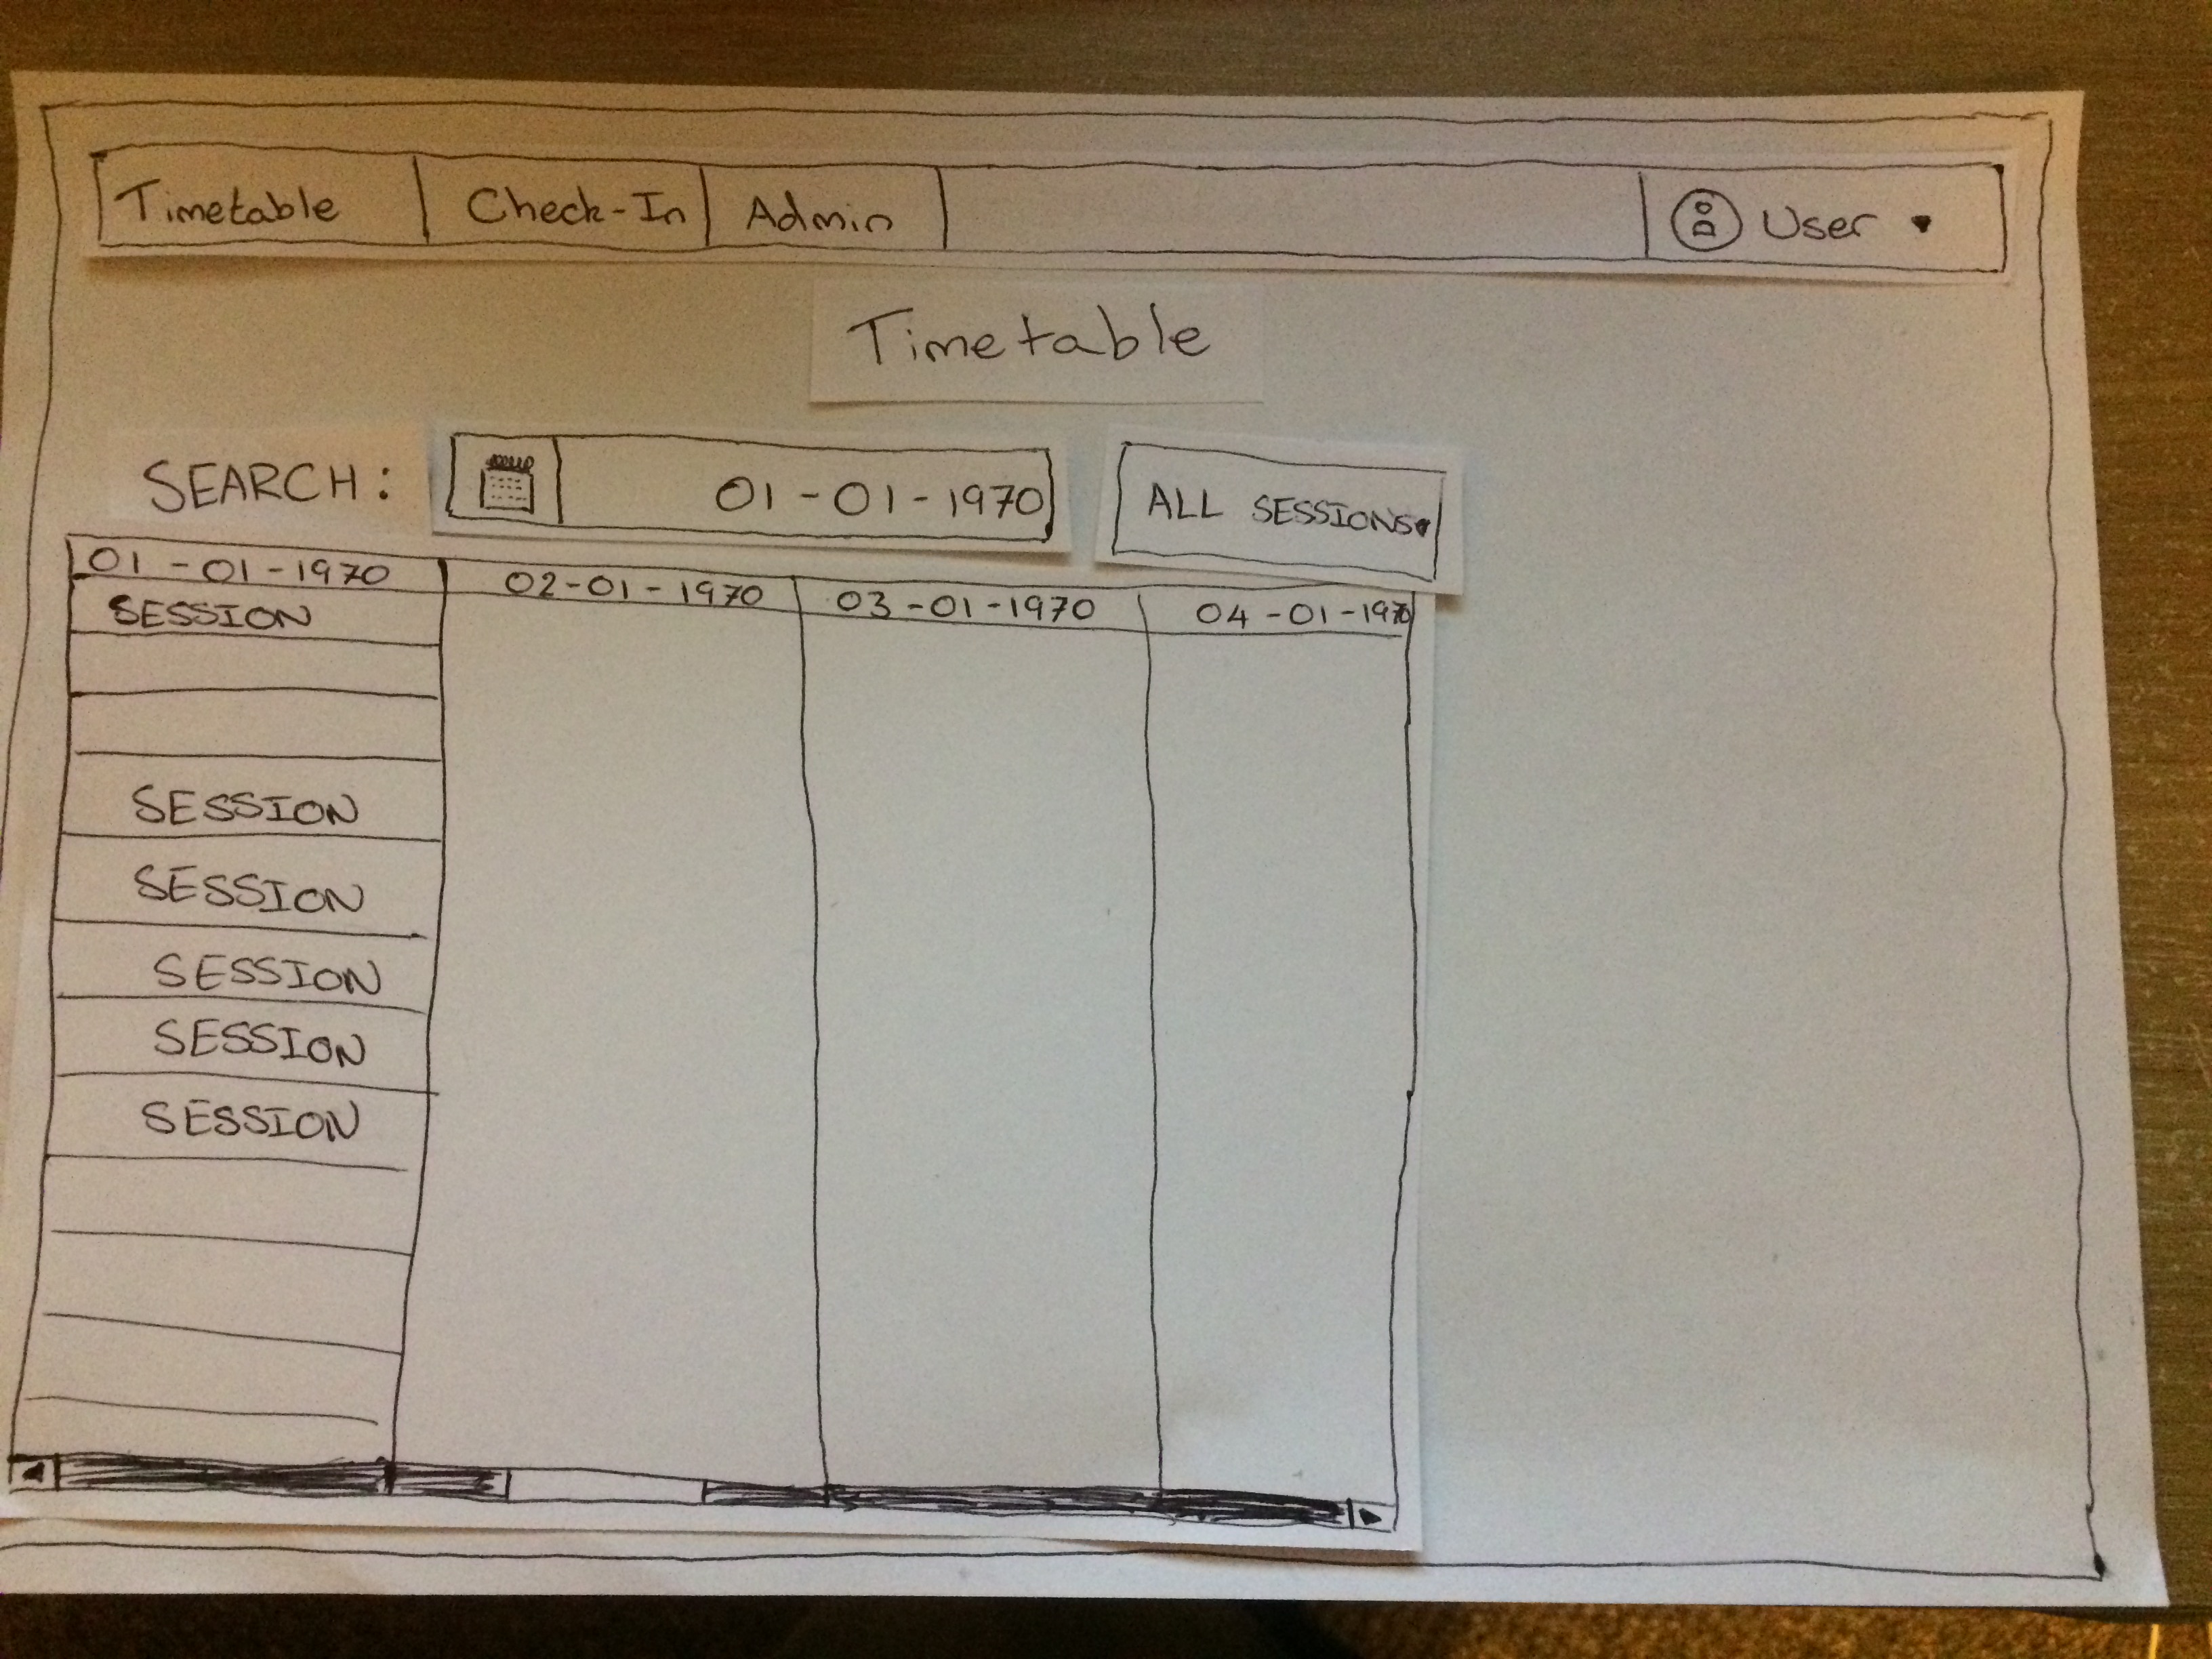 Timetable Check-In Admin User
Timetable
SEARCH: 01-01-1970 ALL SESSIONS
01-01-1970 02-01-1970 03-01-1970 04-01-1970
SESSION
SESSION
SESSION
SESSION
SESSION
SESSION